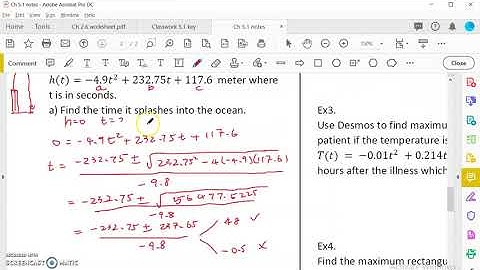 Ch 5.1 notes - Adobe Acrobat Pro DC
Ch 2.6 worksheet.pdf
Classwork 5.1 key
Ch 5.1 notes
h(t) = −4.9t² + 232.75t + 117.6 meter where
a b c
t is in seconds.
a) Find the time it splashes into the ocean.
h=0 t=?
0 = -4.9t² + 232.75t + 117.6
t = -232.75 ± √232.75² - 4(-4.9)(117.6)
-9.8
= -232.75 ± √56477.5225
-9.8
= -232.75 ± 237.65
-9.8
48 ✓
-0.5 ×
Ex3.
Use Desmos to find maximum
patient if the temperature is
T(t) = −0.01t² + 0.214t
hours after the illness which
Ex4.
Find the maximum rectangu
RECORDED WITH
SCREENCAST-O-MATIC